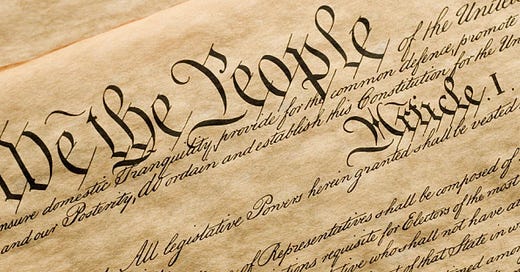 We the People of the United
nsure domestic Tranquility, provide for the common defence, promote
and our Posterity, do ordain and establish this Constitution for the Un
Article. I.
All legislative Powers herein granted shall be vested
of Representatives shall be composed of
tions requisite for Electors of the most
who shall not have at
of that State in w